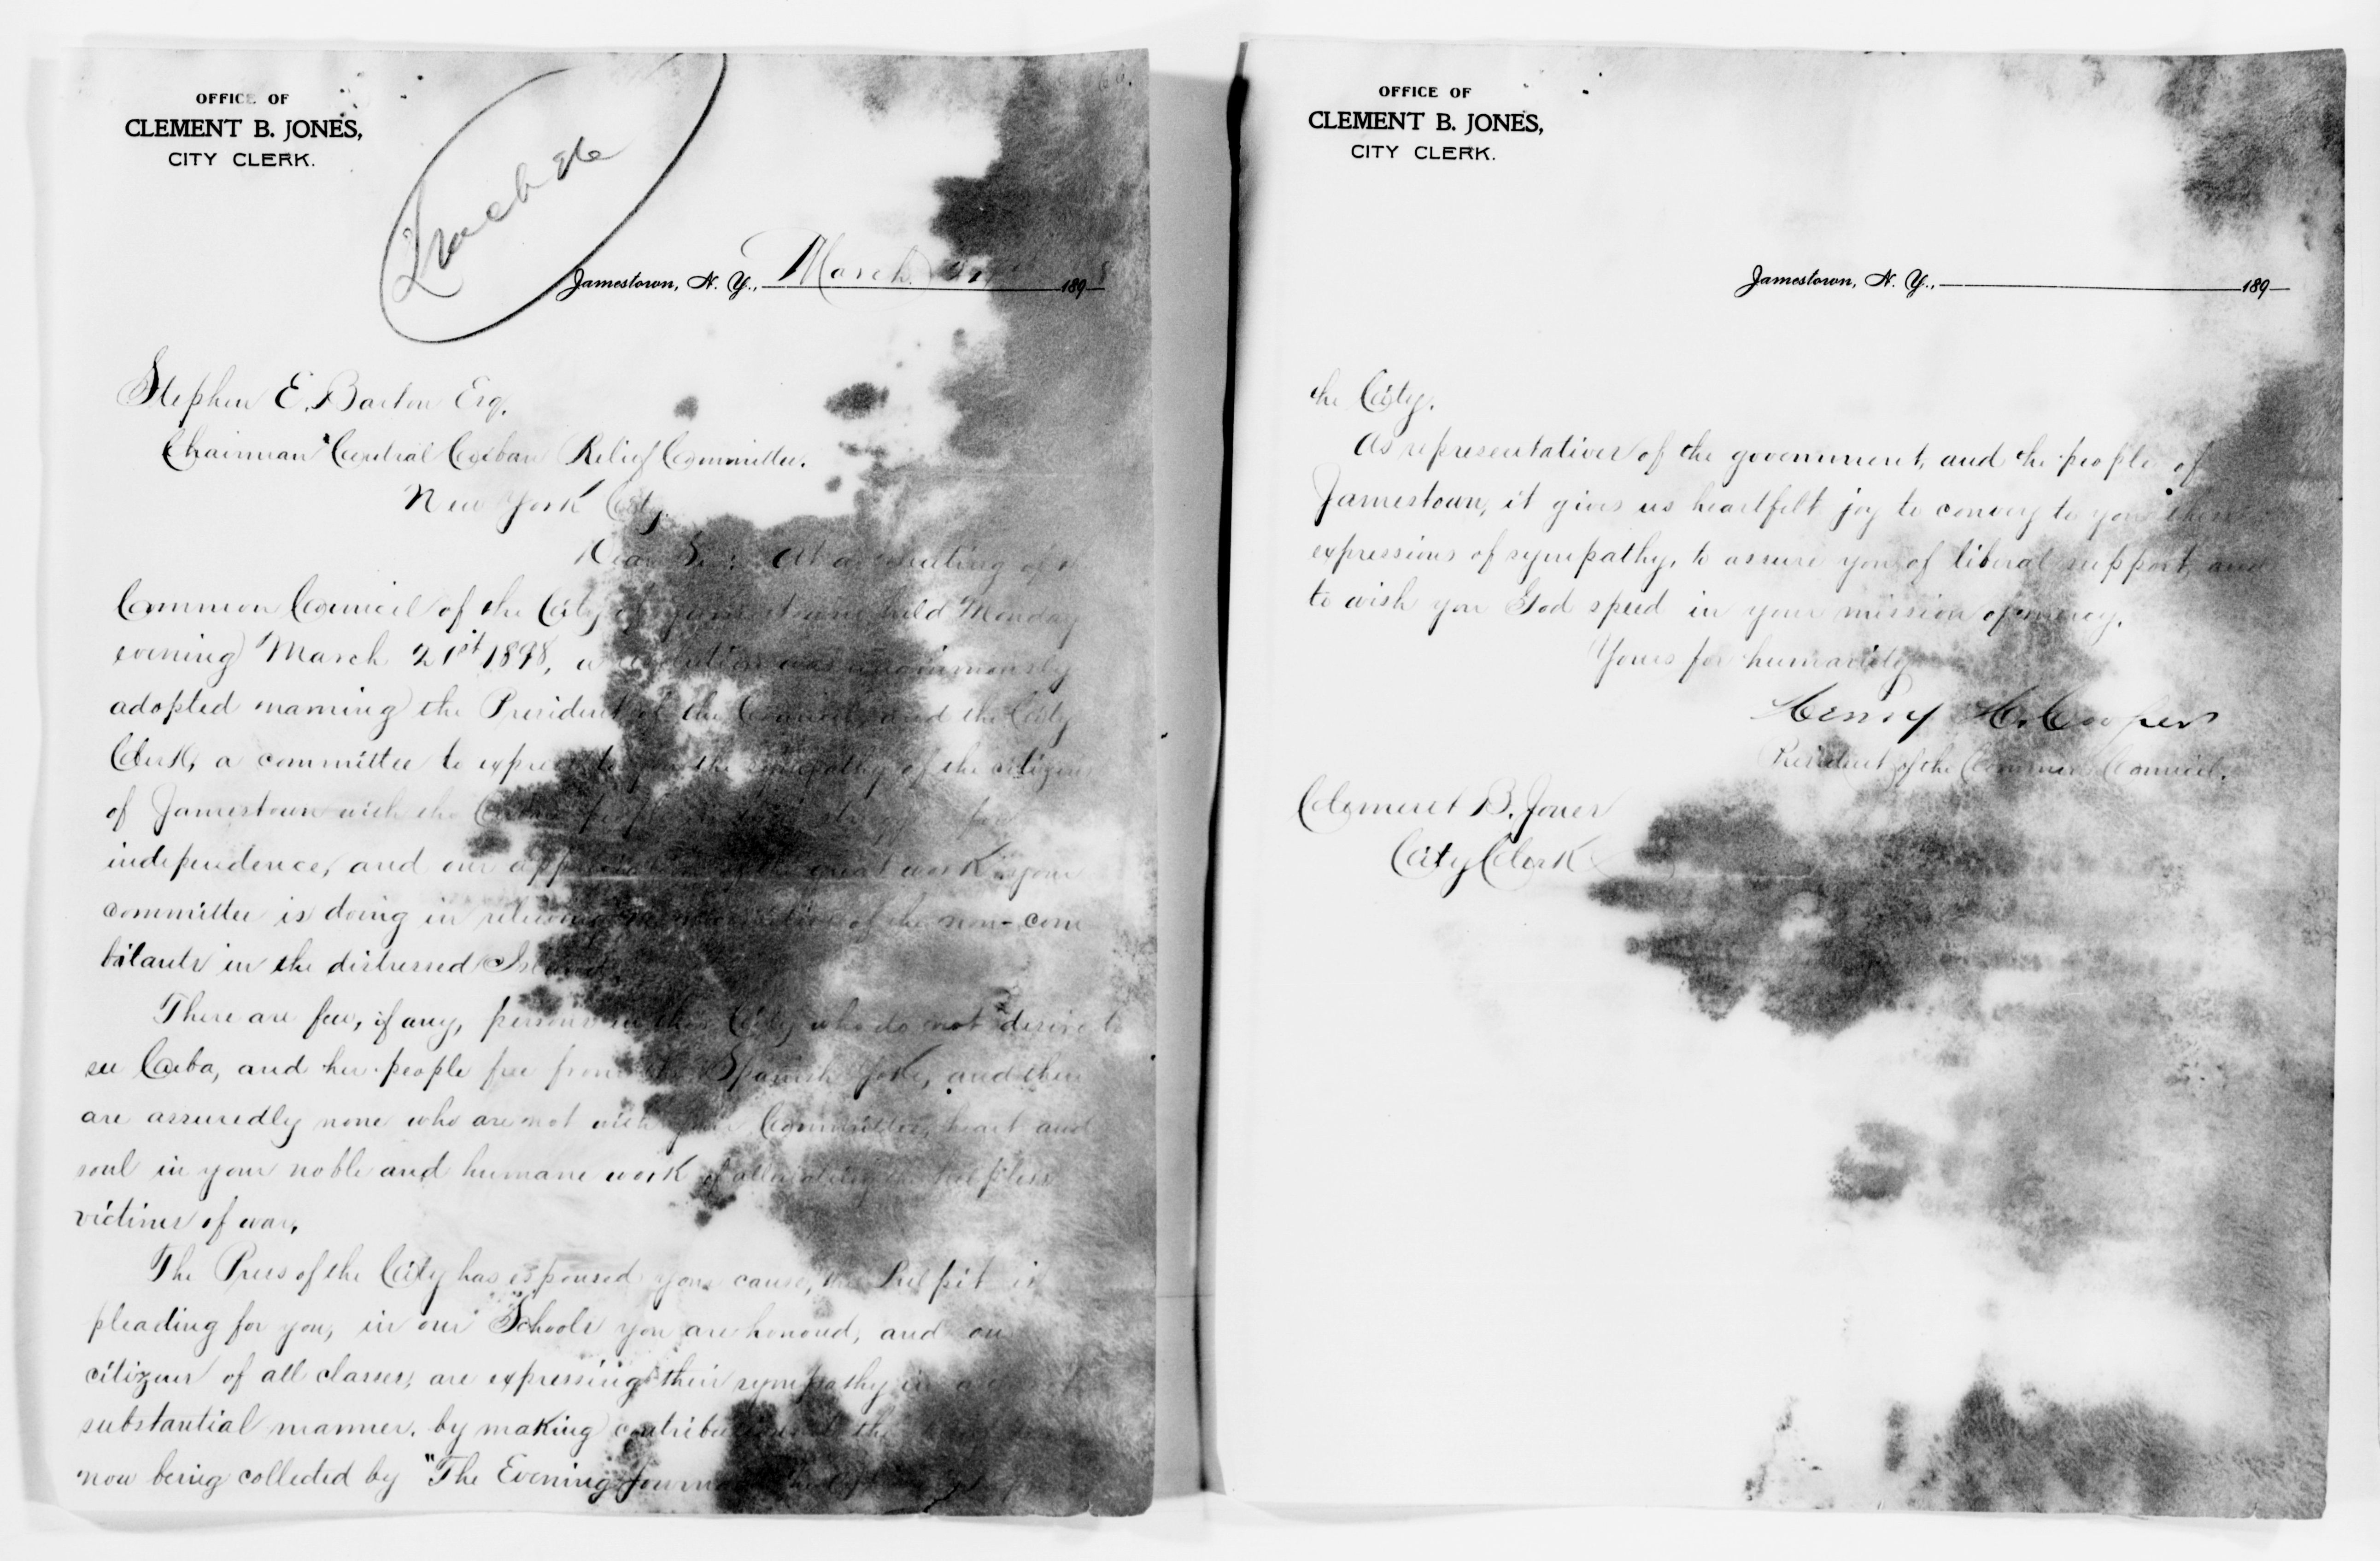 OFFICE OF
CLEMENT B. JONES,
CITY CLERK.
Jamestown, N. Y., March 189
Stephen E. Barton Esq.
Chairman Central Cuban Relief Committee.
New York City.
Dear Sir: At a meeting of
Common Council of the City of Jamestown held Monday
evening March 21st 1898, a resolution was unanimously
adopted naming the President of the Council and the City
Clerk, a committee to express to you the sympathy of the citizens
of Jamestown with the Cuban
independence, and our appreciation of the great work your
committee is doing in relieving of the non-com
batants in the distressed Island.
There are few, if any, persons in this City who do not desire to
see Cuba, and her people free from the Spanish yoke, and there
are assuredly none who are not with your Committee, heart and
soul in your noble and humane work of alleviating the helpless
victims of war.
The Press of the City has espoused your cause, the Pulpit is
pleading for you, in our Schools you are honored, and our
citizens of all classes, are expressing their sympathy in a
substantial manner. by making contributions to the
now being collected by "The Evening Journal
OFFICE OF
CLEMENT B. JONES,
CITY CLERK.
Jamestown, N. Y., 189
the City.
As representatives of the government, and the people of
Jamestown, it gives us heartfelt joy to convey to you these
expressions of sympathy, to assure you of liberal support, and
to wish you God speed in your mission of mercy.
Yours for humanity
Henry H. Cooper
President of the Common Council.
Clement B. Jones
City Clerk